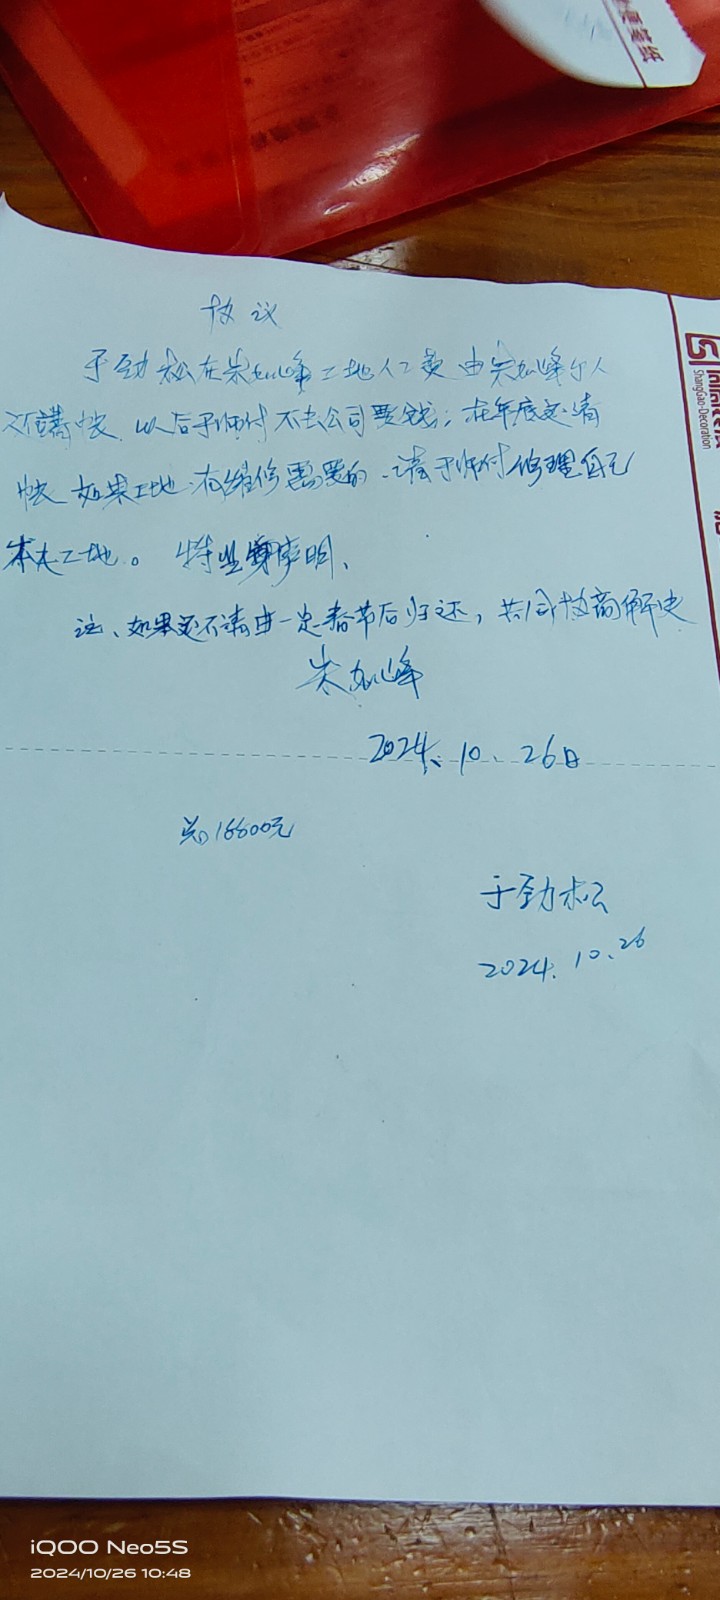 协议
于劲松在朱如峰工地人工费由朱如峰个人
还清帐，以后于师付不去公司要钱；在年底还清
帐 如果工地有维修需要的、请于师付修理自己
本人工地。 特此声明、
注、如果还不清 一定春节后归还，共同协商解决
朱如峰
2024、10、26日
总16600元
于劲松
2024.10.26
ShangGao·Decoration
iQOO Neo5S
2024/10/26 10:48